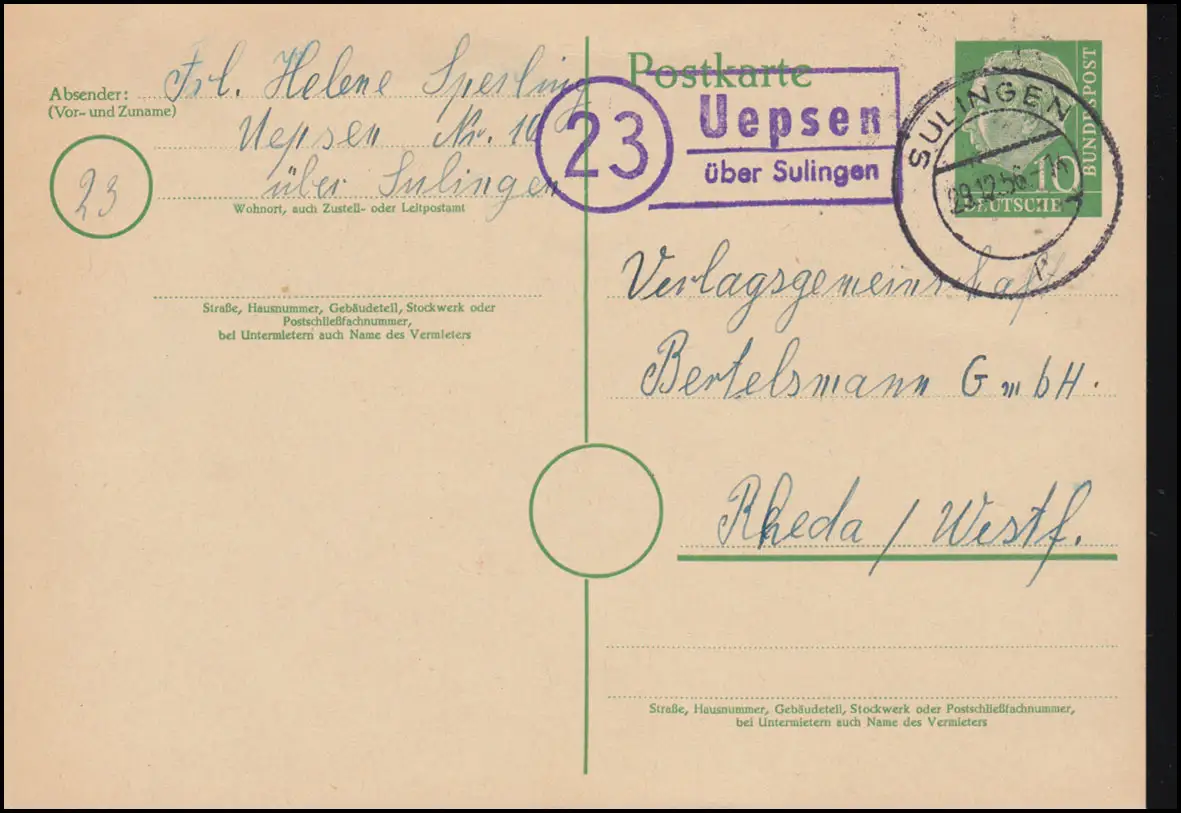 Absender:
(Vor- und Zuname)
Frl. Helene Sperling
Uepsen Nr. 16
über Sulingen
23
Wohnort, auch Zustell- oder Leitpostamt
Straße, Hausnummer, Gebäudeteil, Stockwerk oder
Postschließfachnummer,
bei Untermietern auch Name des Vermieters
Postkarte
23
Uepsen
über Sulingen
SULINGEN
29.12.56
10
BUNDESPOST
DEUTSCHE
Verlagsgemeinschaft
Bertelsmann GmbH.
Rheda / Westf.
Straße, Hausnummer, Gebäudeteil, Stockwerk oder Postschließfachnummer,
bei Untermietern auch Name des Vermieters